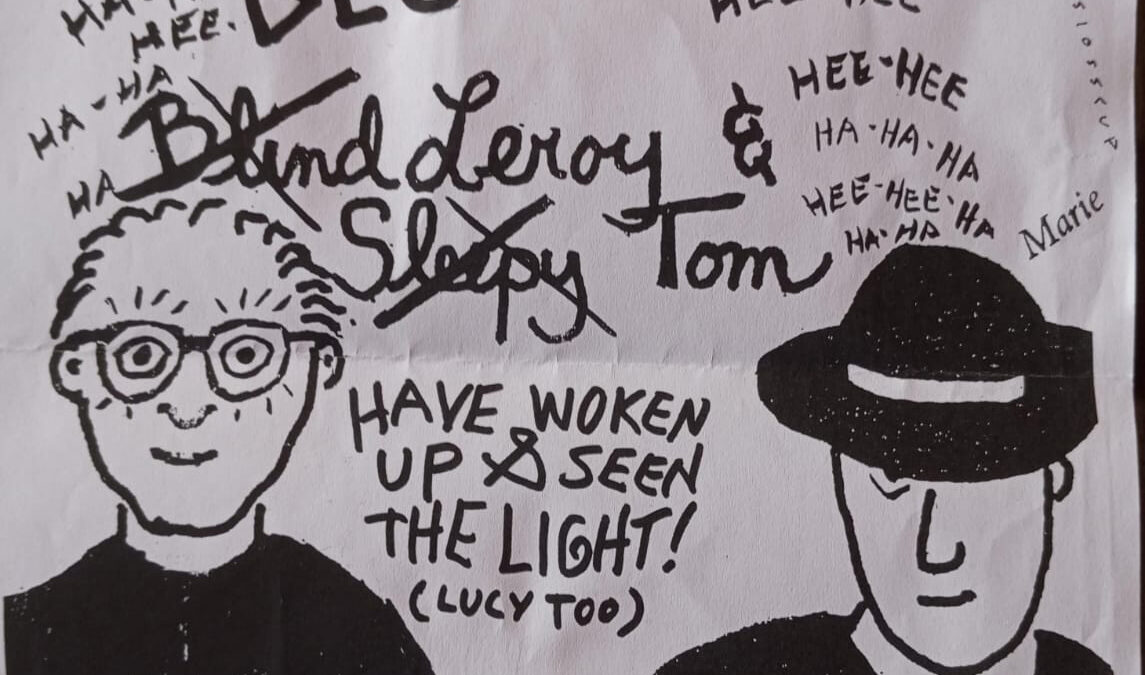 HEE.
HA-HA
HA
HEE-HEE
HA-HA-HA
HEE-HEE-HA
HA-HA
Blind Leroy &
Sleepy Tom
Marie
HAVE WOKEN
UP & SEEN
THE LIGHT!
(LUCY TOO)